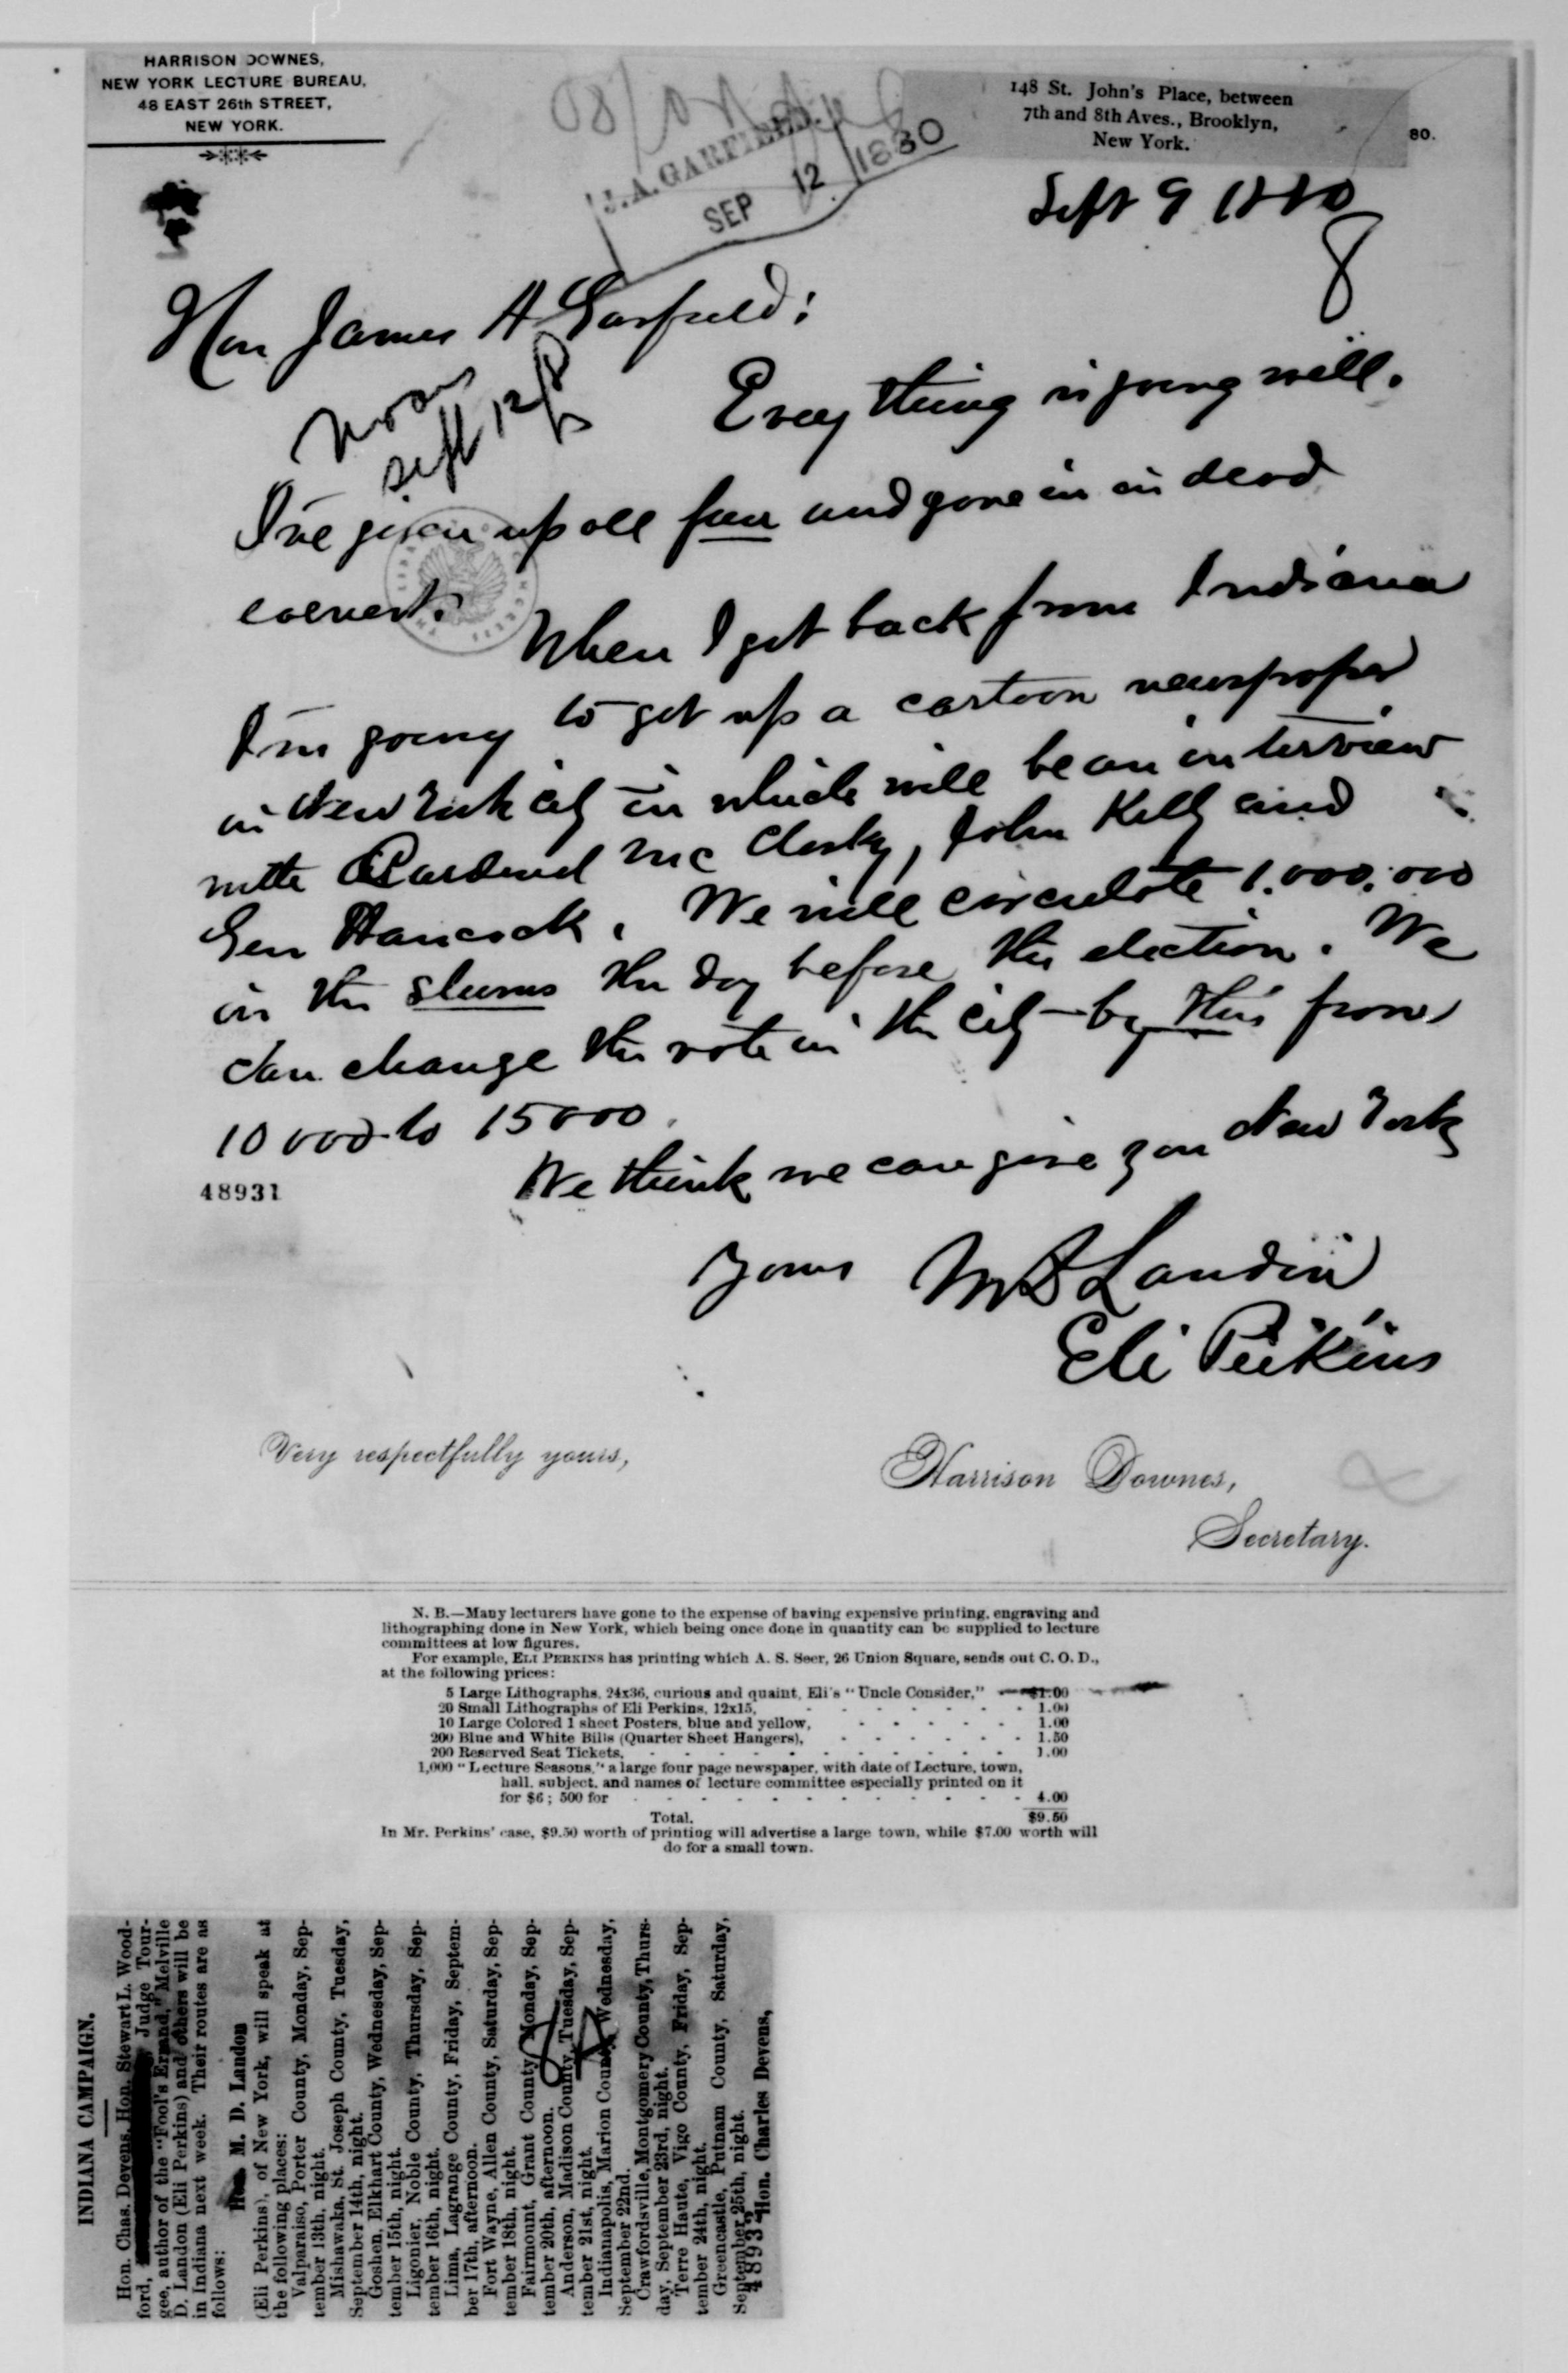 HARRISON DOWNES,
NEW YORK LECTURE BUREAU,
48 EAST 26th STREET,
NEW YORK.
148 St. John's Place, between
7th and 8th Aves., Brooklyn,
New York.
80.
J. A. GARFIELD.
SEP 12 1880
Sept 9 1880
8
Hon James A Garfield:
Sept 12/80
Every thing is going well.
I've given up all fun and gone in in dead
earnest.
When I get back from Indiana
I'm going to get up a cartoon newspaper
in New York city in which will be an interview
with Cardinal McClosky, John Kelly and
Gen Hancock. We will circulate 1,000,000
in the slums the day before the election. We
can change the vote in the city by this from
10000 to 15000.
We think we can give you New York
48931
Yours M D Landon
Eli Perkins
Very respectfully yours,
Harrison Downes,
Secretary.
N. B.—Many lecturers have gone to the expense of having expensive printing, engraving and
lithographing done in New York, which being once done in quantity can be supplied to lecture
committees at low figures.
For example, ELI PERKINS has printing which A. S. Seer, 26 Union Square, sends out C. O. D.,
at the following prices:
5 Large Lithographs, 24x36, curious and quaint, Eli's "Uncle Consider," $1.00
20 Small Lithographs of Eli Perkins, 12x15, - - - - - - 1.00
10 Large Colored 1 sheet Posters, blue and yellow, - - - - - 1.00
200 Blue and White Bills (Quarter Sheet Hangers), - - - - - 1.50
200 Reserved Seat Tickets, - - - - - - - - - 1.00
1,000 "Lecture Seasons," a large four page newspaper, with date of Lecture, town,
hall, subject, and names of lecture committee especially printed on it
for $6; 500 for - - - - - - - - - - - 4.00
Total, $9.50
In Mr. Perkins' case, $9.50 worth of printing will advertise a large town, while $7.00 worth will
do for a small town.
INDIANA CAMPAIGN.
Hon. Chas. Devens, Hon. Stewart L. Wood-
ford, Judge Tour-
gee, author of the "Fool's Errand," Melville
D. Landon (Eli Perkins) and others will be
in Indiana next week. Their routes are as
follows:
Hon. M. D. Landon
(Eli Perkins), of New York, will speak at
the following places:
Valparaiso, Porter County, Monday, Sep-
tember 13th, night.
Mishawaka, St. Joseph County, Tuesday,
September 14th, night.
Goshen, Elkhart County, Wednesday, Sep-
tember 15th, night.
Ligonier, Noble County, Thursday, Sep-
tember 16th, night.
Lima, Lagrange County, Friday, Septem-
ber 17th, afternoon.
Fort Wayne, Allen County, Saturday, Sep-
tember 18th, night.
Fairmount, Grant County, Monday, Sep-
tember 20th, afternoon.
Anderson, Madison County, Tuesday, Sep-
tember 21st, night.
Indianapolis, Marion County, Wednesday,
September 22nd.
Crawfordsville, Montgomery County, Thurs-
day, September 23rd, night.
Terre Haute, Vigo County, Friday, Sep-
tember 24th, night.
Greencastle, Putnam County, Saturday,
September 25th, night.
Hon. Charles Devens,
48932